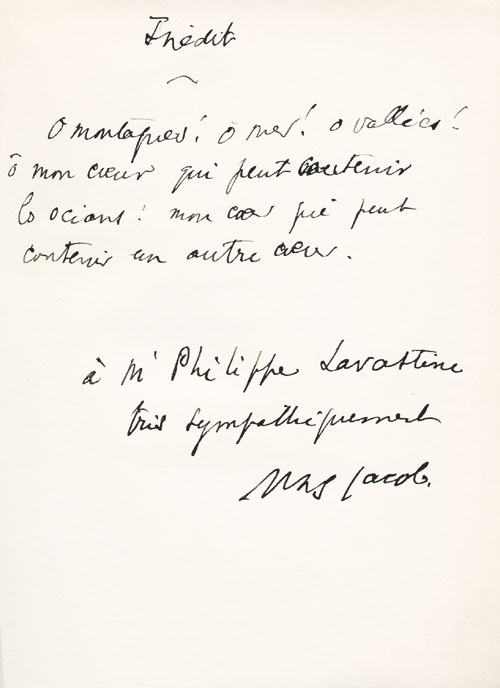 Inédit
O montagnes! ô mer! o vallées!
ô mon cœur qui peut contenir
les océans! mon cœur qui peut
contenir un autre cœur.
à Mr Philippe Lavastine
très sympathiquement
Max Jacob.